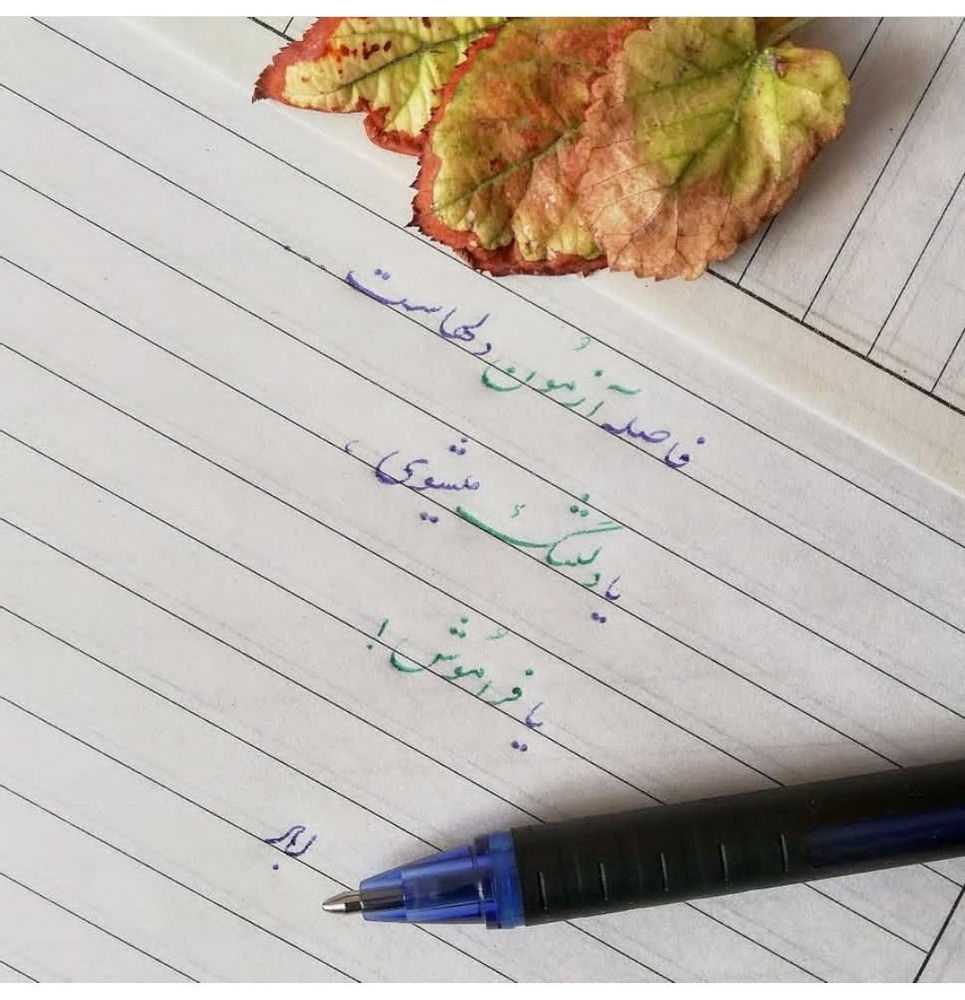 فاصله آزمُون دلهاست...
یا دلتنگ میشوی،
یا فرامُوش!